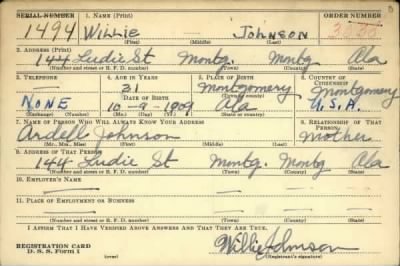 SERIAL NUMBER 1. NAME (Print) ORDER NUMBER
1494 Willie Johnson
(First) (Middle) (Last)
2. ADDRESS (Print)
144 Ludie St Montg. Montg Ala
(Number and street or R. F. D. number) (Town) (County) (State)
3. TELEPHONE 4. AGE IN YEARS 5. PLACE OF BIRTH 6. COUNTRY OF CITIZENSHIP
— 31 Montgomery Montgomery
DATE OF BIRTH (Town or county)
NONE 10-9-1909 Ala U.S.A.
(Exchange) (Number) (Mo.) (Day) (Yr.) (State or country)
7. NAME OF PERSON WHO WILL ALWAYS KNOW YOUR ADDRESS 8. RELATIONSHIP OF THAT PERSON
Ardell Johnson Mother
(Mr., Mrs., Miss) (First) (Middle) (Last)
9. ADDRESS OF THAT PERSON
144 Ludie St Montg. Montg Ala
(Number and street or R. F. D. number) (Town) (County) (State)
10. EMPLOYER'S NAME
—
11. PLACE OF EMPLOYMENT OR BUSINESS
— — — —
(Number and street or R. F. D. number) (Town) (County) (State)
I AFFIRM THAT I HAVE VERIFIED ABOVE ANSWERS AND THAT THEY ARE TRUE.
REGISTRATION CARD
D. S. S. Form 1 (over) Willie Johnson
(Registrant's signature)